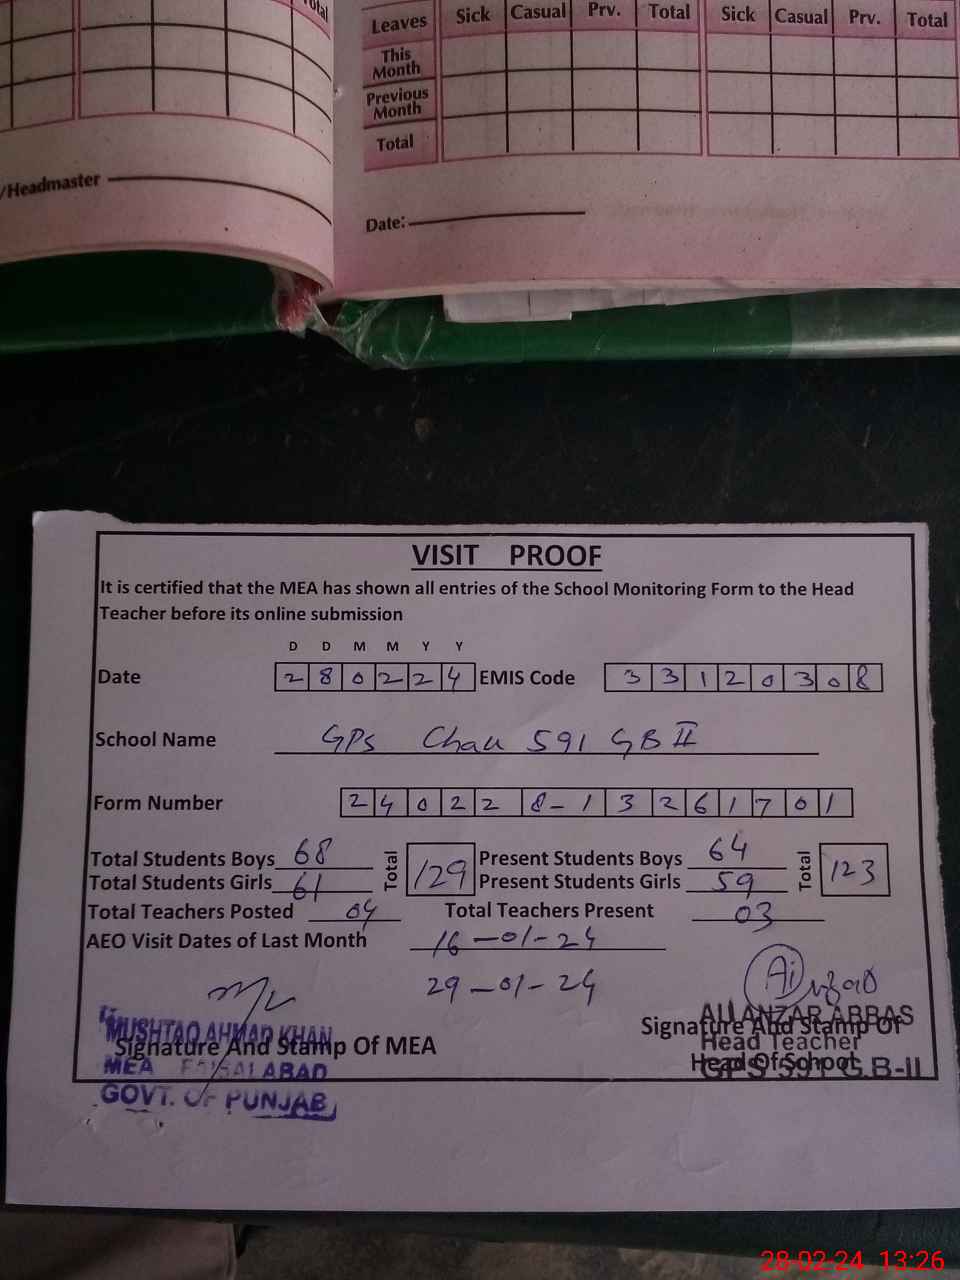 Total
/Headmaster
Leaves Sick Casual Prv. Total Sick Casual Prv. Total
This Month
Previous Month
Total
Date:
VISIT PROOF
It is certified that the MEA has shown all entries of the School Monitoring Form to the Head
Teacher before its online submission
D D M M Y Y
Date 2 8 0 2 2 4 EMIS Code 3 3 1 2 0 3 0 8
School Name GPS Chak 591 GB II
Form Number 2 4 0 2 2 8 - 1 3 2 6 1 7 0 1
Total Students Boys 68 Total 129 Present Students Boys 64 Total 123
Total Students Girls 61 Present Students Girls 59
Total Teachers Posted 04 Total Teachers Present 03
AEO Visit Dates of Last Month 16-01-24
29-01-24
MUSHTAQ AHMAD KHAN
Signature And Stamp Of MEA
MEA FAISALABAD
GOVT. OF PUNJAB
ALI ANZAR ABBAS
Signature And Stamp Of
Head Teacher
Head Of School
GPS 591 G.B-II
28-02-24 13:26